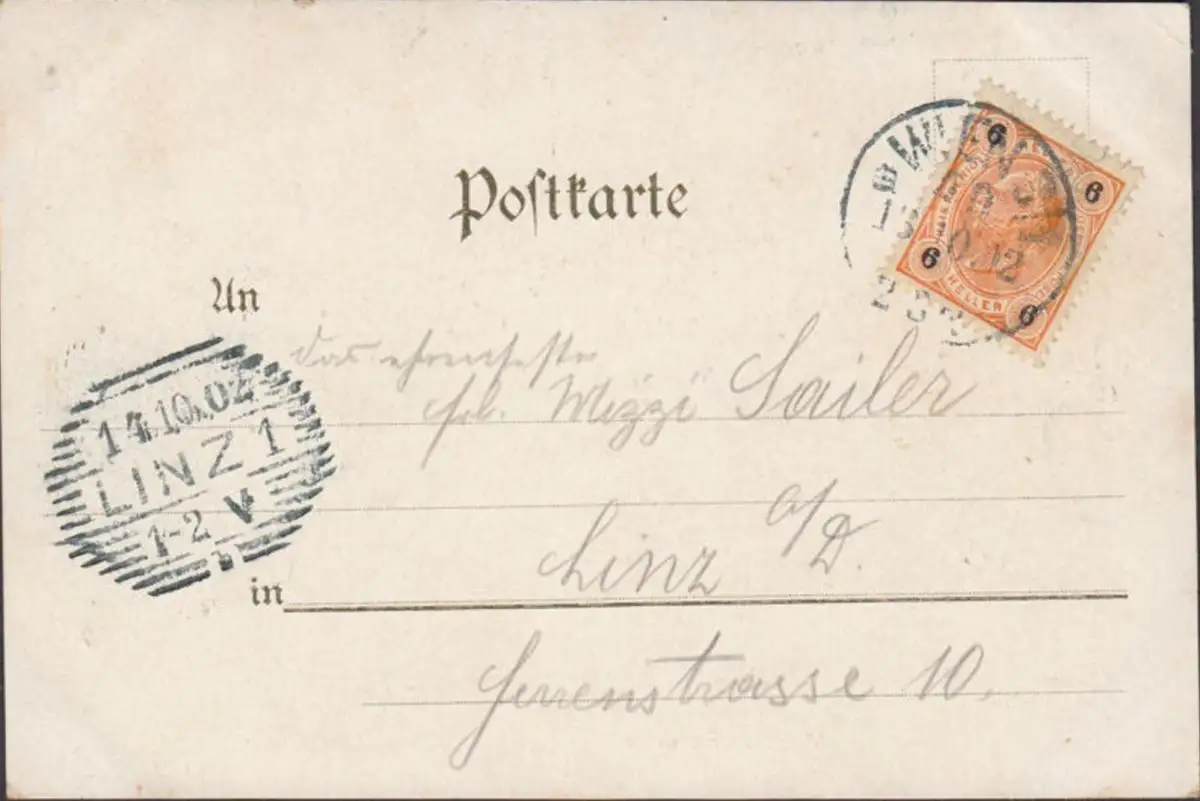 Postkarte
6 6 6 6
HELLER
WIEN
An
das ehrenfeste
frl. Mizzi Sailer
14.10.02
LINZ 1
1-2 V
Linz a/D.
in
Herrenstrasse 10.